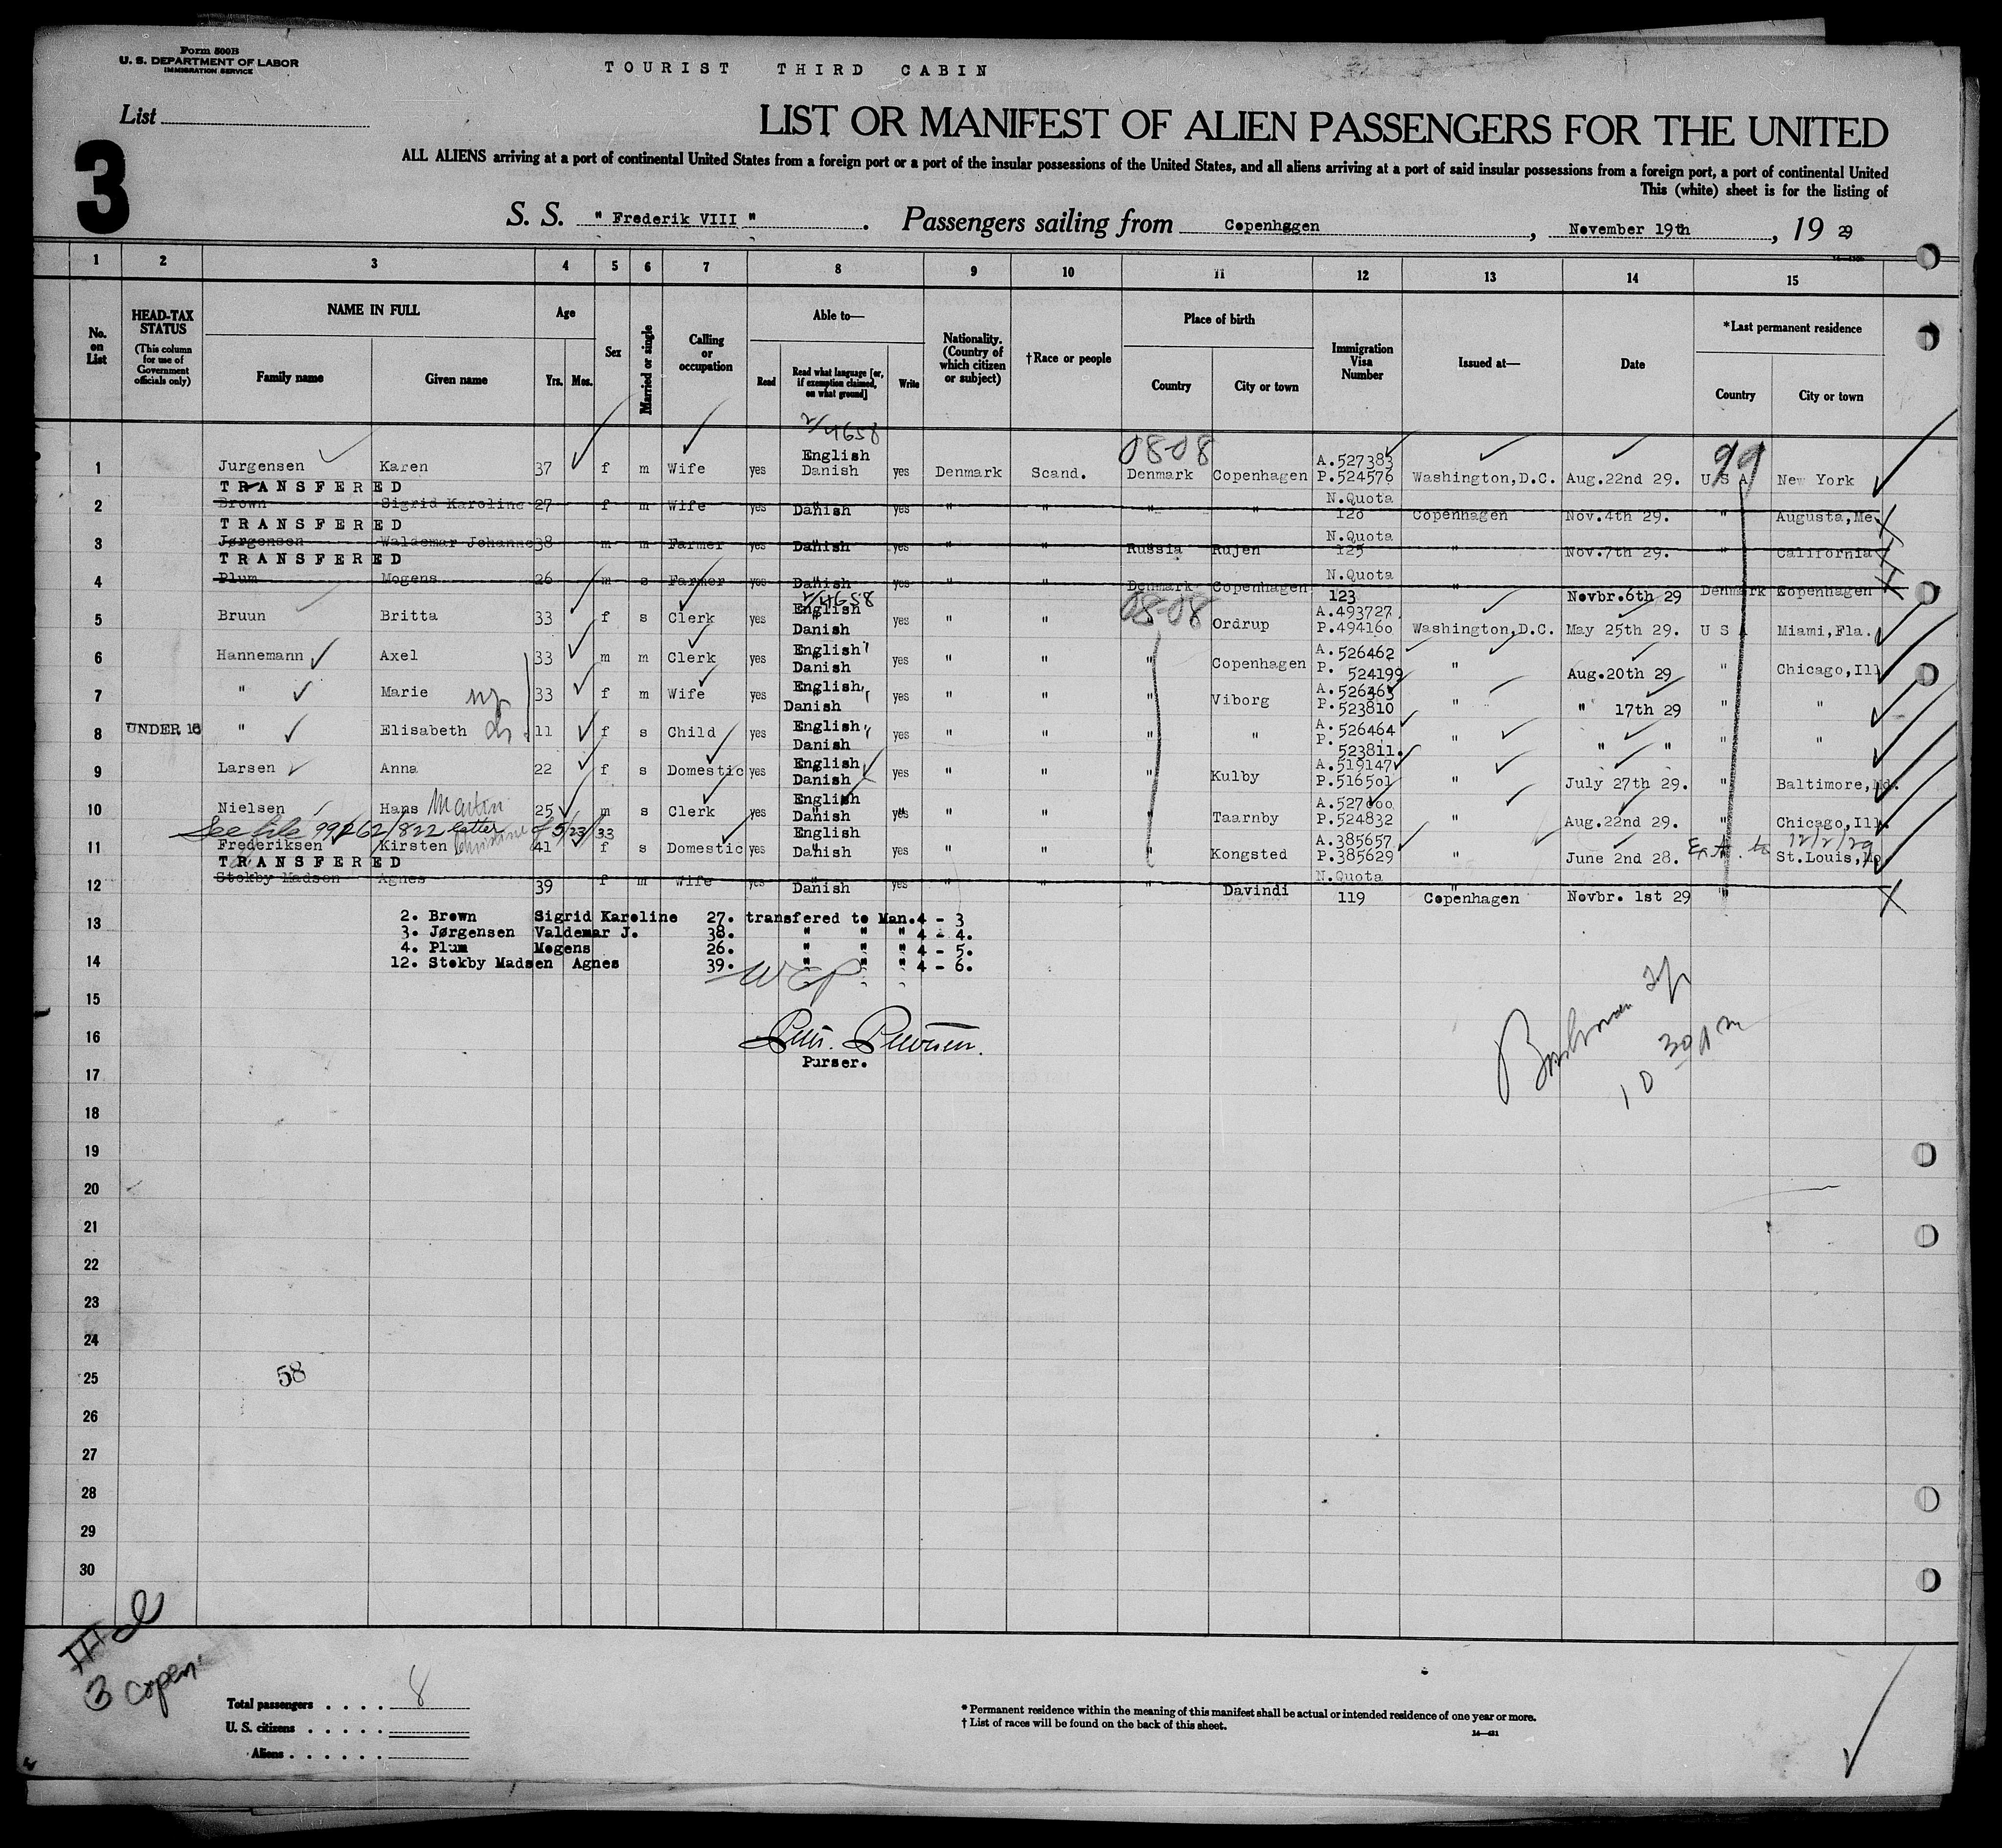 Form 500B
U. S. DEPARTMENT OF LABOR
IMMIGRATION SERVICE
TOURIST THIRD CABIN
List
3
LIST OR MANIFEST OF ALIEN PASSENGERS FOR THE UNITED
ALL ALIENS arriving at a port of continental United States from a foreign port or a port of the insular possessions of the United States, and all aliens arriving at a port of said insular possessions from a foreign port, a port of continental United
This (white) sheet is for the listing of
S. S. "Frederik VIII". Passengers sailing from Copenhagen, November 19th, 19 29
1 2 3 4 5 6 7 8 9 10 11 12 13 14 15
No. on List
HEAD-TAX STATUS (This column for use of Government officials only)
NAME IN FULL
Family name Given name
Age
Yrs. Mos.
Sex
Married or single
Calling or occupation
Able to—
Read
Read what language [or, if exemption claimed, on what ground]
Write
Nationality. (Country of which citizen or subject)
†Race or people
Place of birth
Country City or town
Immigration Visa Number
Issued at—
Date
*Last permanent residence
Country City or town
2/4658
0808 99
1 Jurgensen Karen 37 f m Wife yes English Danish yes Denmark Scand. Denmark Copenhagen A.527383 P.524576 Washington,D.C. Aug.22nd 29. U S A New York
TRANSFERED
2 Brown Sigrid Karoline 27 f m Wife yes Danish yes " " " " N.Quota 120 Copenhagen Nov.4th 29. " Augusta,Me.
TRANSFERED
3 Jørgensen Waldemar Johanne 38 m m Farmer yes Danish yes " " Russia Rujen N.Quota 125 " Nov.7th 29. " California
TRANSFERED
4 Plum Mogens 26 m s Farmer yes Danish yes " " Denmark Copenhagen N.Quota 123 " Novbr.6th 29 Denmark Copenhagen
2/4658
08-08
5 Bruun Britta 33 f s Clerk yes English Danish yes " " " Ordrup A.493727 P.494160 Washington,D.C. May 25th 29. U S A Miami,Fla.
6 Hannemann Axel 33 m m Clerk yes English Danish yes " " " Copenhagen A.526462 P.524199 " Aug.20th 29 " Chicago,Ill
7 " Marie 33 f m Wife yes English Danish yes " " " Viborg A.526463 P.523810 " " 17th 29 " "
8 UNDER 16 " Elisabeth 11 f s Child yes English Danish yes " " " " A.526464 P.523811. " " " " "
9 Larsen Anna 22 f s Domestic yes English Danish yes " " " Kulby A.519147 P.516501 " July 27th 29. " Baltimore,Md.
10 Nielsen Hans Martin 25 m s Clerk yes English Danish yes " " " Taarnby P.524832 " Aug.22nd 29. " Chicago,Ill.
See file 99262/822 letter of 5/23/33
11 Frederiksen Kirsten Christine 41 f s Domestic yes English Danish yes " " " Kongsted A.385657 P.385629 " June 2nd 28. Ext. to 12/2/29 St.Louis,Mo
TRANSFERED
12 Stokby Madsen Agnes 39 f m Wife yes Danish yes " " " Davindi N.Quota 119 Copenhagen Novbr. 1st 29 "
13 2. Brown Sigrid Karoline 27. transfered to Man.4 - 3
3. Jørgensen Valdemar J. 38. " " " 4 - 4.
4. Plum Mogens 26. " " " 4 - 5.
14 12. Stokby Madsen Agnes 39. " " " 4 - 6.
15
16
Purser.
17
10 30 AM
18
19
20
21
22
23
24
25 58
26
27
28
29
30
3 Copen.
Total passengers . . . . 8
U. S. citizens . . . . .
Aliens . . . . . .
* Permanent residence within the meaning of this manifest shall be actual or intended residence of one year or more.
† List of races will be found on the back of this sheet.
14—421